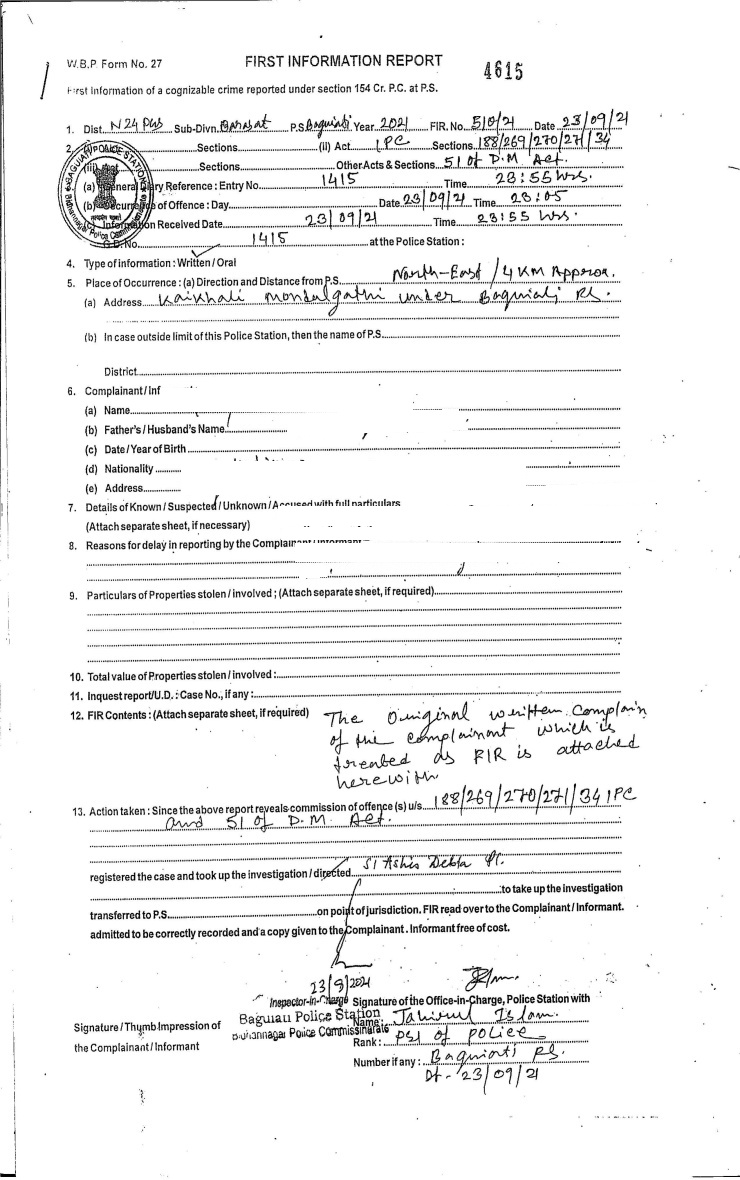 W.B.P. Form No. 27 FIRST INFORMATION REPORT 4615
First Information of a cognizable crime reported under section 154 Cr. P.C. at P.S.
1. Dist. N 24 PGS Sub-Divn. Barasat P.S. Baguiati Year 2021 FIR. No. 510/21 Date 23/09/21
2. Sections (ii) Act IPC Sections 188/269/270/271/34
(iii) Sections Other Acts & Sections 51 of D.M Act.
(a) General Diary Reference : Entry No. 1415 Time 23:55 hrs.
(b) Occurrence of Offence : Day Date 23/09/21 Time 23:05
(c) Information Received Date 23/09/21 Time 23:55 hrs.
G.D. No. 1415 at the Police Station :
4. Type of information : Written / Oral
5. Place of Occurrence : (a) Direction and Distance from P.S. North-East / 4 KM Approx.
(a) Address Kaikhali mondalgathi under Baguiati PS.
(b) In case outside limit of this Police Station, then the name of P.S.
District
6. Complainant / Inf
(a) Name
(b) Father's / Husband's Name
(c) Date / Year of Birth
(d) Nationality
(e) Address
7. Details of Known / Suspected / Unknown / Accused with full particulars
(Attach separate sheet, if necessary)
8. Reasons for delay in reporting by the Complainant / Informant
9. Particulars of Properties stolen / involved ; (Attach separate sheet, if required)
10. Total value of Properties stolen / involved :
11. Inquest report/U.D. : Case No., if any :
12. FIR Contents : (Attach separate sheet, if required) The Original written complain
of the complainant which is
treated as FIR is attached
herewith
13. Action taken : Since the above report reveals commission of offence (s) u/s. 188/269/270/271/34 IPC
and 51 of D.M. Act.
registered the case and took up the investigation / directed SI Ashis Debta
to take up the investigation
transferred to P.S. on point of jurisdiction. FIR read over to the Complainant / Informant.
admitted to be correctly recorded and a copy given to the Complainant. Informant free of cost.
23/9/2021
Inspector-in-Charge Signature of the Office-in-Charge, Police Station with
Baguiati Police Station Name : Tahirul Islam.
Signature / Thumb Impression of Bidhannagar Police Commissionarate
Rank : PSI of Police
the Complainant / Informant
Number if any : Baguiati PS.
Dt - 23/09/21